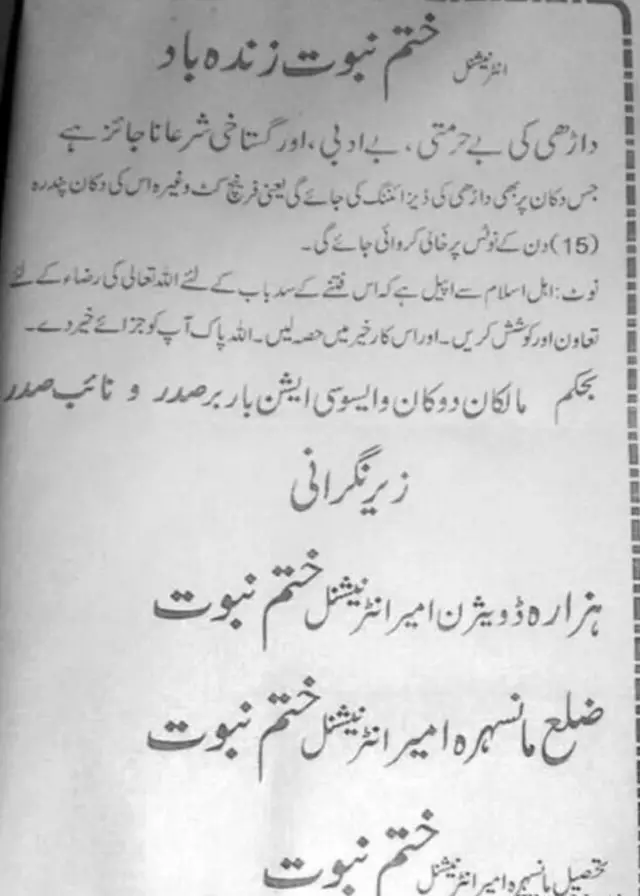 انٹرنیشنل ختم نبوت زندہ باد
داڑھی کی بے حرمتی، بے ادبی، اور گستاخی شرعا ناجائز ہے
جس دکان پر بھی داڑھی کی ڈیزائننگ کی جائے گی یعنی فرنچ کٹ وغیرہ اس کی دکان پندرہ
(15) دن کے نوٹس پر خالی کروائی جائے گی۔
نوٹ: اہل اسلام سے اپیل ہے کہ اس فتنے کے سد باب کے لئے اللہ تعالی کی رضاء کے لئے
تعاون اور کوشش کریں۔ اور اس کار خیر میں حصہ لیں۔ اللہ پاک آپ کو جزائے خیر دے۔
بحکم مالکان دوکان و ایسوسی ایشن باربر صدر و نائب صدر
زیر نگرانی
ہزارہ ڈویژن امیر انٹرنیشنل ختم نبوت
ضلع مانسہرہ امیر انٹرنیشنل ختم نبوت
تحصیل مانسہرہ امیر انٹرنیشنل ختم نبوت